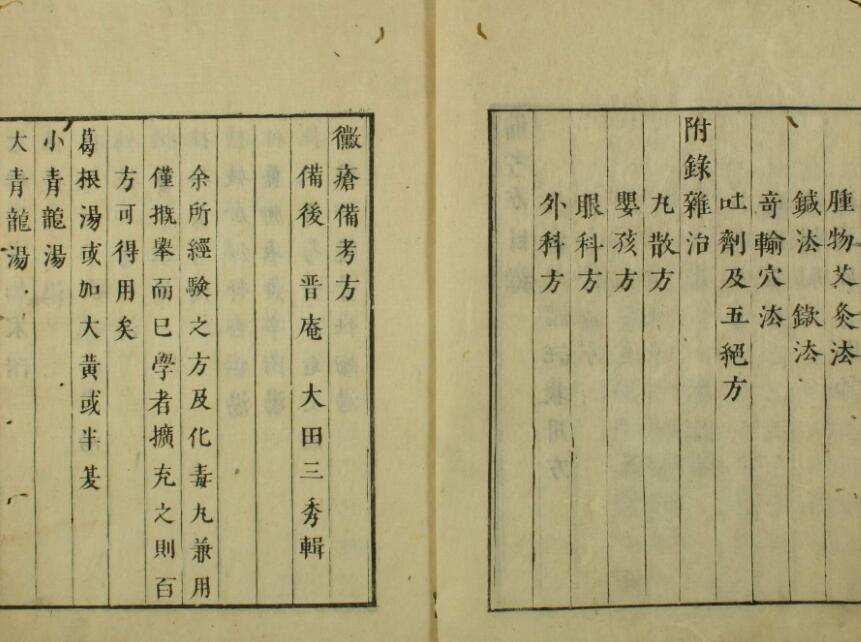 腫物艾灸法
鍼法 錄法
奇輸穴法
吐劑及五絕方
附錄雜治
丸散方
嬰孩方
眼科方
外科方
黴瘡備考方
備後 晋庵 大田三秀輯
余所經驗之方及化毒丸兼用
僅摡舉而已學者擴充之則百
方可得用矣
葛根湯或加大黃或半夏
小青龍湯
大青龍湯